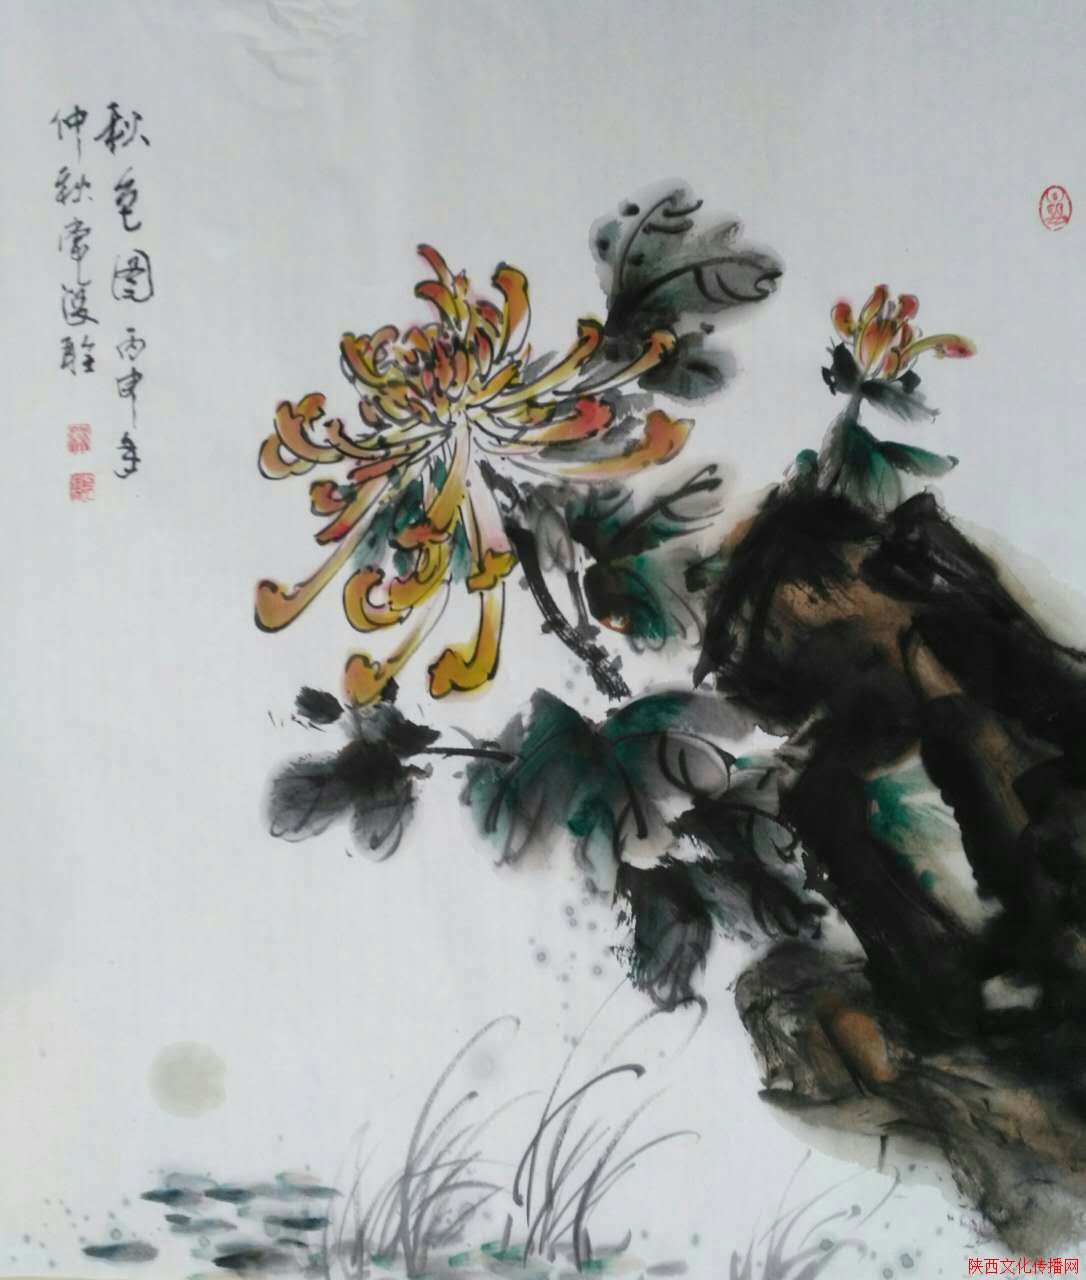 秋色图丙申年
仲秋常
陕西文化传播网